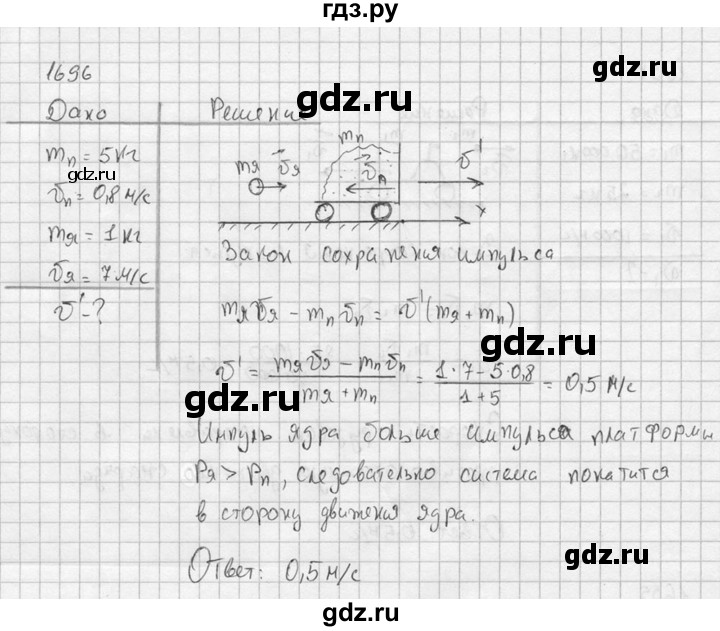 гдз.ру
gdz.ru
1696
Дано
Решение
gdz.ru
mп = 5 кг
υп = 0,8 м/с
mя = 1 кг
υя = 7 м/с
υ' - ?
mя υя
mп
υп
υ'
x
Закон сохранения импульса
mяυя − mпυп = υ'(mя + mп)
υ' = (mяυя − mпυп)/(mя + mп) = (1·7 − 5·0,8)/(1+5) = 0,5 м/с
gdz.ru
Импуль ядра больше импульса платформы
Pя > Pп, следовательно система покатится
в сторону движения ядра.
gdz.ru
Ответ: 0,5 м/с
gdz.ru